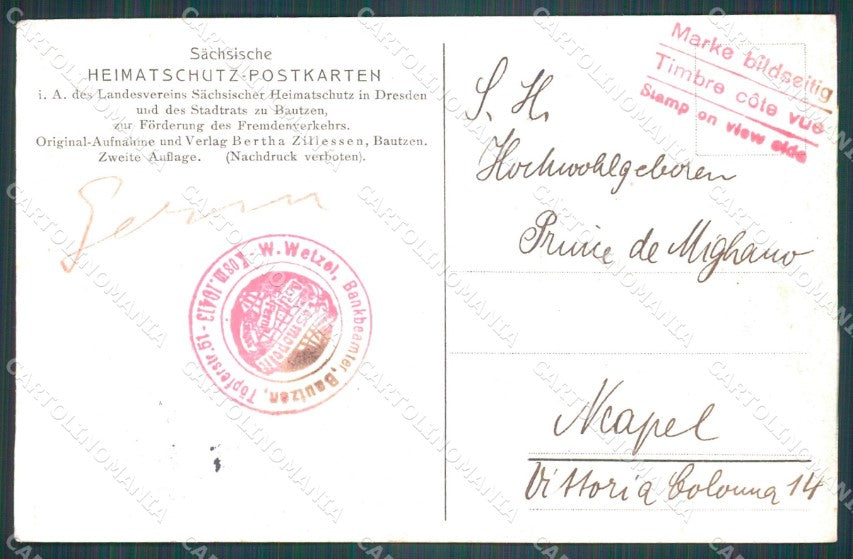 Sächsische
HEIMATSCHUTZ-POSTKARTEN
i. A. des Landesvereins Sächsischer Heimatschutz in Dresden
und des Stadtrats zu Bautzen,
zur Förderung des Fremdenverkehrs.
Original-Aufnahme und Verlag Bertha Zillessen, Bautzen.
Zweite Auflage. (Nachdruck verboten).
W. Wetzel, Bankbeamter, Bautzen, Töpferstr. 51 - Kosm. 10413
Marke bildseitig
Timbre côte vue
Stamp on view side
S. H.
Hochwohlgeboren
Prince de Mighano
Neapel
Vittoria Colonna 14
CARTOLINOMANIA